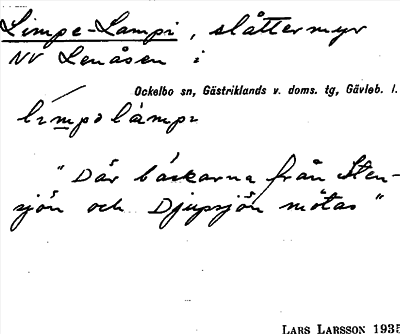 Limpe-Lampi, slåttermyr
NV Lenåsen i
Ockelbo sn, Gästriklands v. doms. tg, Gävleb. l.
lìmpolàmpi
"Där bäckarna från Sten-
sjön och Djupsjön mötas"
LARS LARSSON 1935